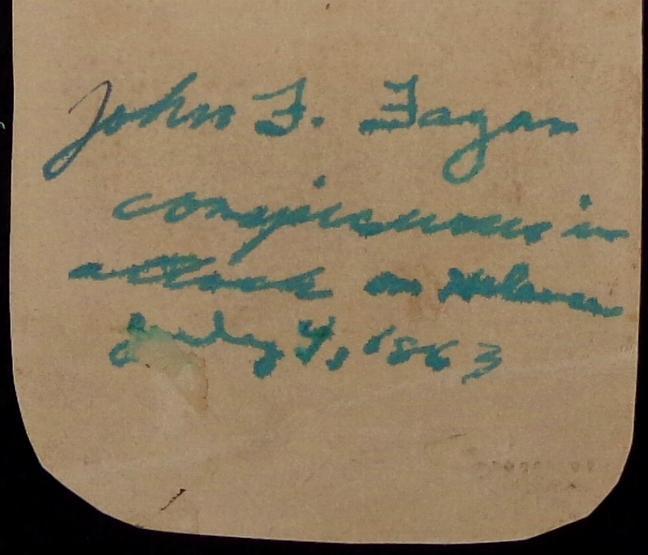 John F. Fagan
conspicuous in
attack on Helena
July 4, 1863